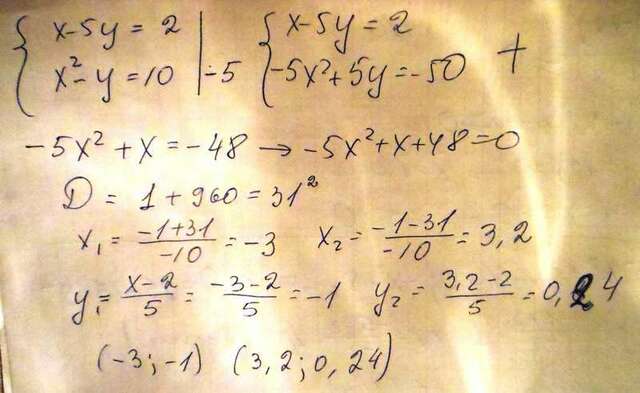 { x-5y = 2 | { x-5y = 2
x²-y = 10 | ·-5 -5x²+5y = -50 +
-5x² + x = -48 → -5x²+x+48=0
D = 1 + 960 = 31²
x₁ = (-1+31)/(-10) = -3 x₂ = (-1-31)/(-10) = 3,2
y₁ = (x-2)/5 = (-3-2)/5 = -1 y₂ = (3,2-2)/5 = 0,24
(-3; -1) (3,2; 0,24)